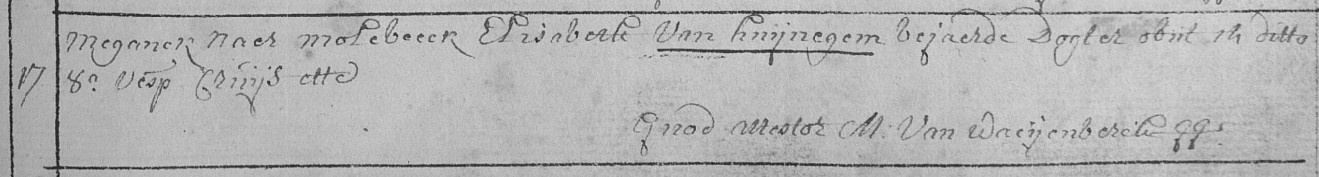 Meganck naer molebeeck Elisabeth Van huijnegem bejaerde Dogter obiit 14 ditto
17 8ª vesp Cruijs ette
Quod attestor M: Van Waeijenberch qq